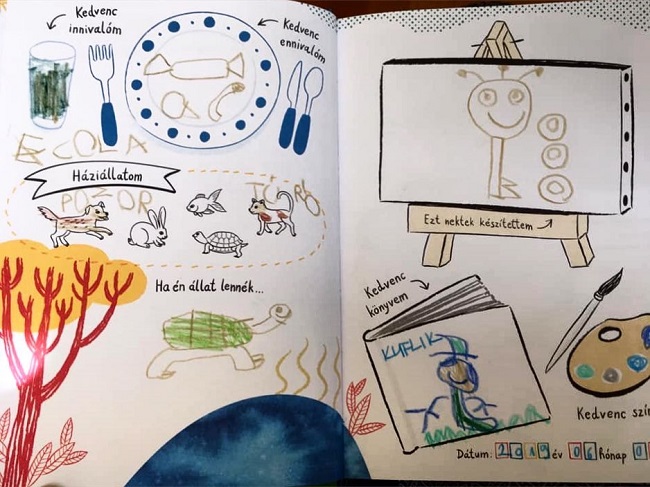 Kedvenc
innivalóm
Kedvenc
ennivalóm
COLA
Háziállatom
Ha én állat lennék...
Ezt nektek készítettem
Kedvenc
könyvem
KUFLIK
Kedvenc
Dátum: 2019 év 06 hónap